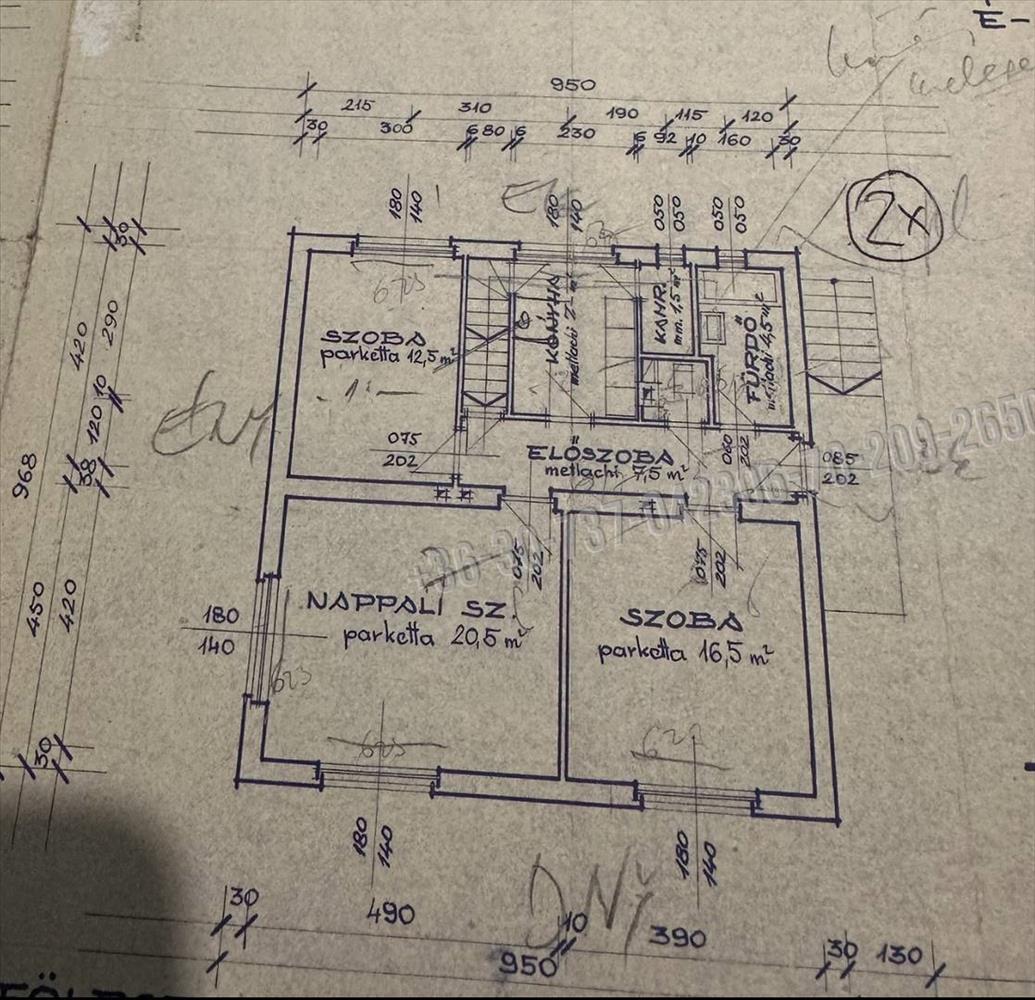 É-
950
215 310 190 115 120
30 300 6 80 6 230 6 92 10 160 30
2x
180
140
180
140
050
050
050
050
30
420 290
10
120
38
968
450 420
30
SZOBA
parketta 12,5 m²
KONYHA
metlachi 7- m²
KAMR.
mm. 1,5 m²
FÜRDŐ
metlachi 4,5 m²
075
202
ELŐSZOBA
metlachi 7,5 m²
060
202
085
202
075
202
075
202
180
140
NAPPALI SZ.
parketta 20,5 m²
SZOBA
parketta 16,5 m²
623
623
180
140
180
140
DNY
30 490 10 390 30 130
950